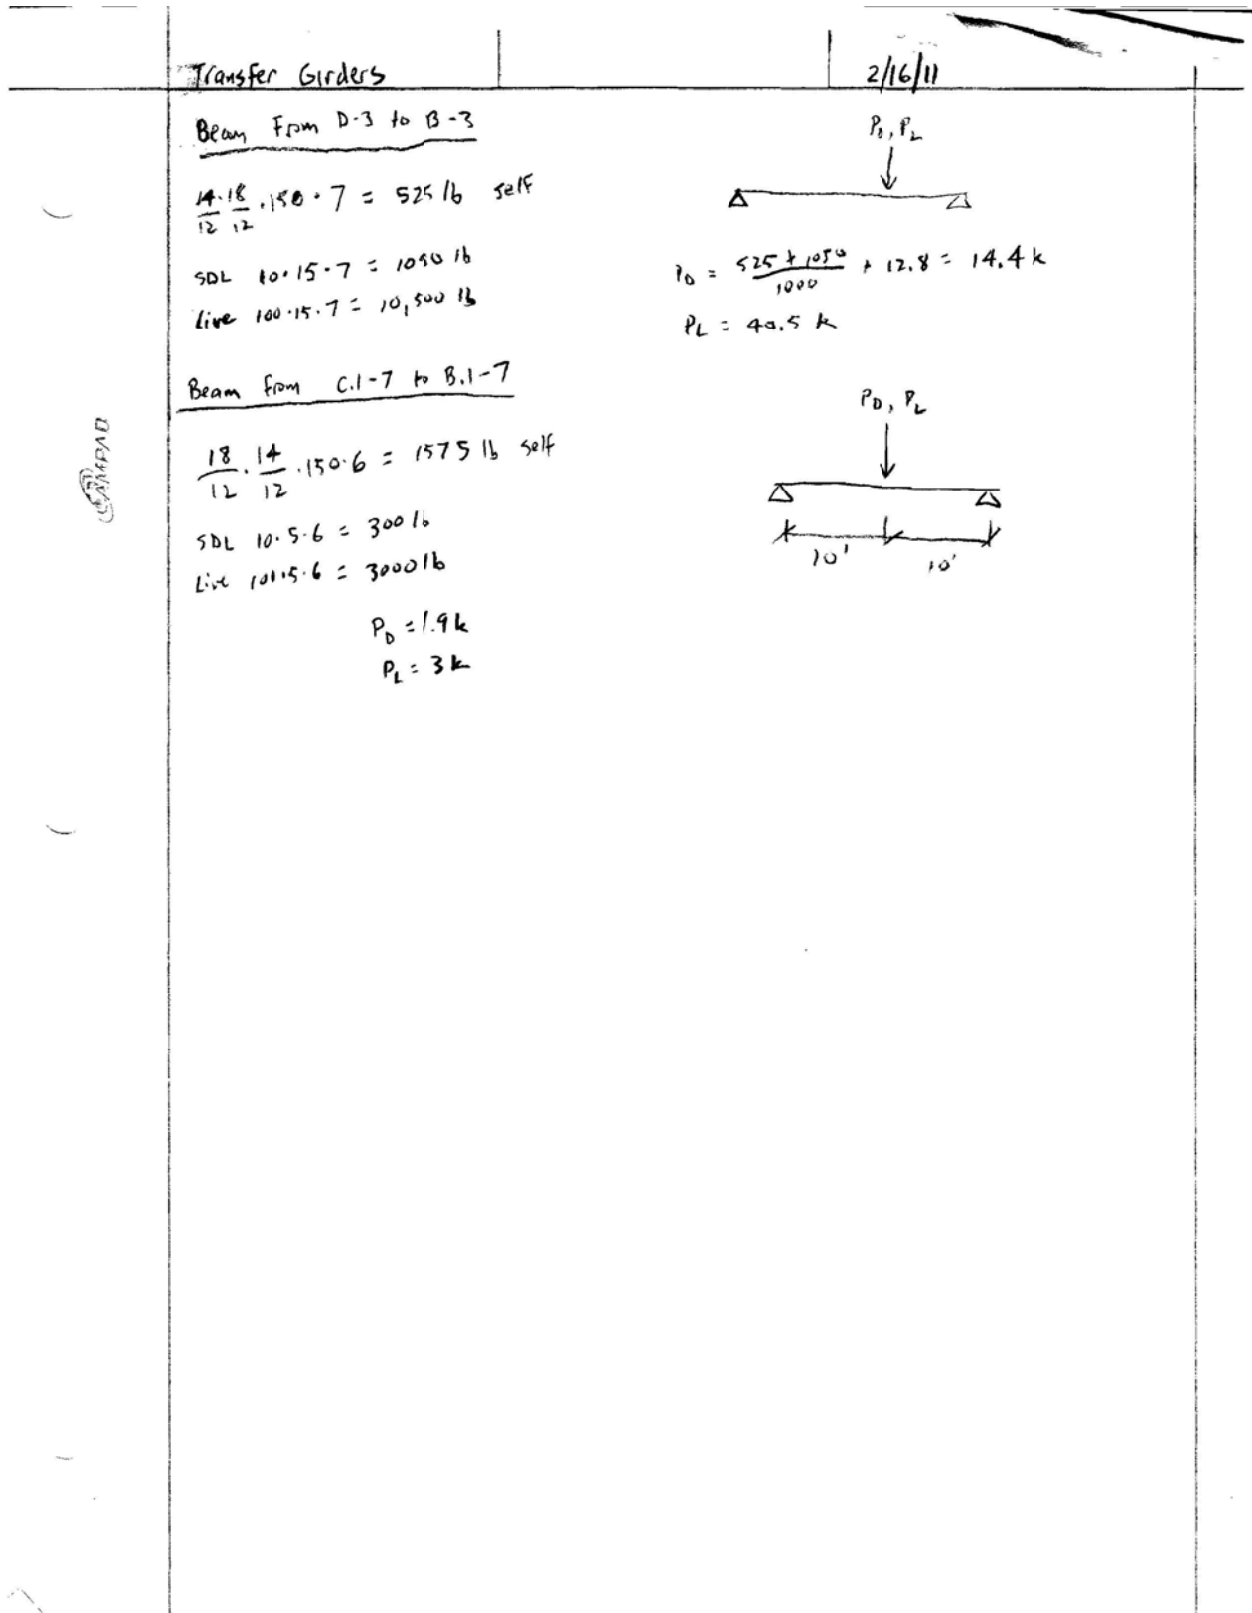 Transfer Girders
2/16/11
Beam From D-3 to B-3
14/12 · 18/12 · 150 · 7 = 525 lb self
SDL 10·15·7 = 1050 lb
Live 100·15·7 = 10,500 lb
P_D, P_L
P_D = (525 + 1050)/1000 + 12.8 = 14.4 k
P_L = 40.5 k
Beam from C.1-7 to B.1-7
18/12 · 14/12 · 150·6 = 1575 lb self
SDL 10·5·6 = 300 lb
Live 101·5·6 = 3000 lb
P_D = 1.9 k
P_L = 3 k
P_D, P_L
10' 10'
CAMPAD